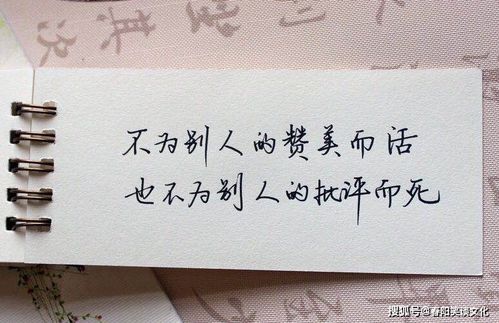 不为别人的赞美而活
也不为别人的批评而死
搜狐号@春阳美读文化